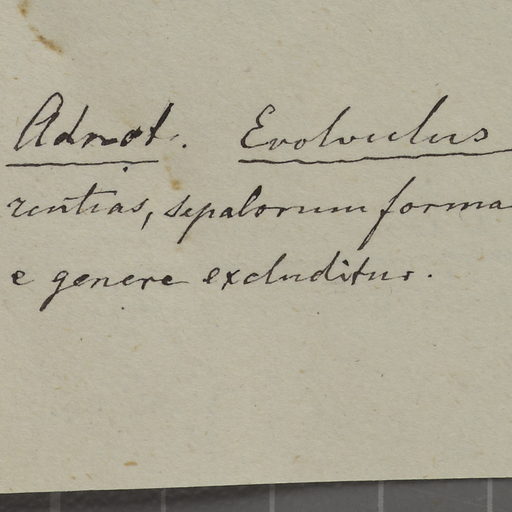 Adnot. Evolvulus
rentias, sepalorum forma
e genere excluditur.